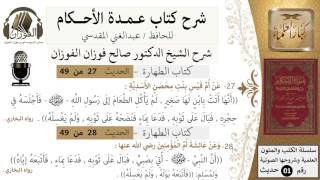 شرح كتاب عمدة الأحكام
للحافظ / عبدالغني المقدسي
شرح الشيخ الدكتور صالح فوزان الفوزان
كتاب الطهارة - الحديث 27 من 49
27- عَنْ أُمِّ قَيْسٍ بِنْتِ مِحْصَنٍ الأَسَدِيَّةِ :
((أَنَّهَا أَتَتْ بِابْنٍ لَهَا صَغِيرٍ , لَمْ يَأْكُلِ الطَّعَامَ إلَى رَسُولِ اللَّهِ - ﷺ - , فَأَجْلَسَهُ فِي
حِجْرِهِ , فَبَالَ عَلَى ثَوْبِهِ , فَدَعَا بِمَاءٍ فَنَضَحَهُ عَلَى ثَوْبِهِ , وَلَمْ يَغْسِلْهُ)) . رواه البخاري
كتاب الطهارة - الحديث 28 من 49
28- وَعَنْ عَائِشَةَ أُمِّ الْمُؤْمِنِينَ رضي الله عنها :
((أَنَّ النَّبِيَّ - ﷺ - أُتِيَ بِصَبِيٍّ , فَبَالَ عَلَى ثَوْبِهِ , فَدَعَا بِمَاءٍ , فَأَتْبَعَهُ إيَّاهُ))
وَلِمُسْلِمٍ : ((فَأَتْبَعَهُ بَوْلَهُ , وَلَمْ يَغْسِلْهُ)) . رواه البخاري
الفوزان
سلسلة الكتب والمتون
العلمية وشروحها الصوتية
رقم 01 حديث